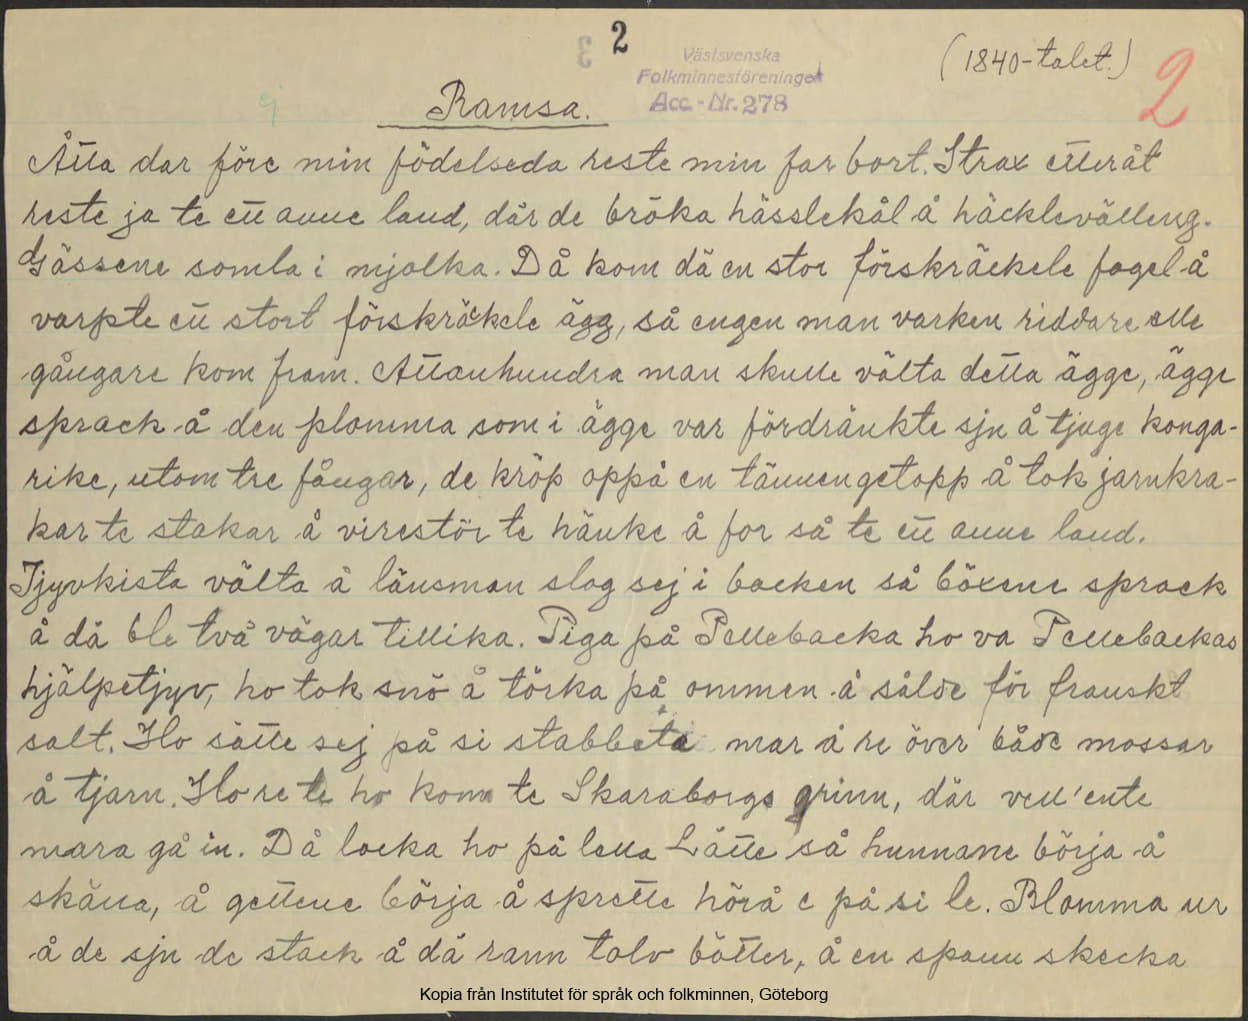 2
(1840-talet.)
Västsvenska
Folkminnesföreningen
Acc.-Nr. 278
2
Ramsa.
Åtta dar före min födelseda reste min far bort. Strax etteråt
reste ja te ett anne land, där de bröka hässlekål å häcklevälleng.
Gässene somla i mjolka. Då kom dä en stor förskräckele fogel å
varpte ett stort förskräckele ägg, så engen man varken riddare elle
gångare kom fram. Attanhundra man skulle välta detta ägge, ägge
sprack å den plomma som i ägge var fördränkte sjn å tjuge konga-
rike, utom tre fångar, de kröp oppå en tännengetopp å tok jarnkra-
kar te stakar å virestör te hänke å for så te ett anne land.
Tjyvkista välta å länsman slog sej i backen så böxene sprack
å dä ble två vägar tillika. Piga på Pellebacka ho va Pellebackas
hjälpetjyv, ho tok snö å törka på ommen å sålde för franskt
salt. Ho sätte sej på si stabbeta mar å re över både mossar
å tjarn. Ho re te ho kom te Skaraborgs grinn, där vell' ente
mara gå in. Då locka ho på lella Lätte så hunnane börja å
skälla, å gettene börja å sprette hörå e på si le. Blomma ur
å de sjn de stack å dä rann tolv bötter, å en spann skecka
Kopia från Institutet för språk och folkminnen, Göteborg